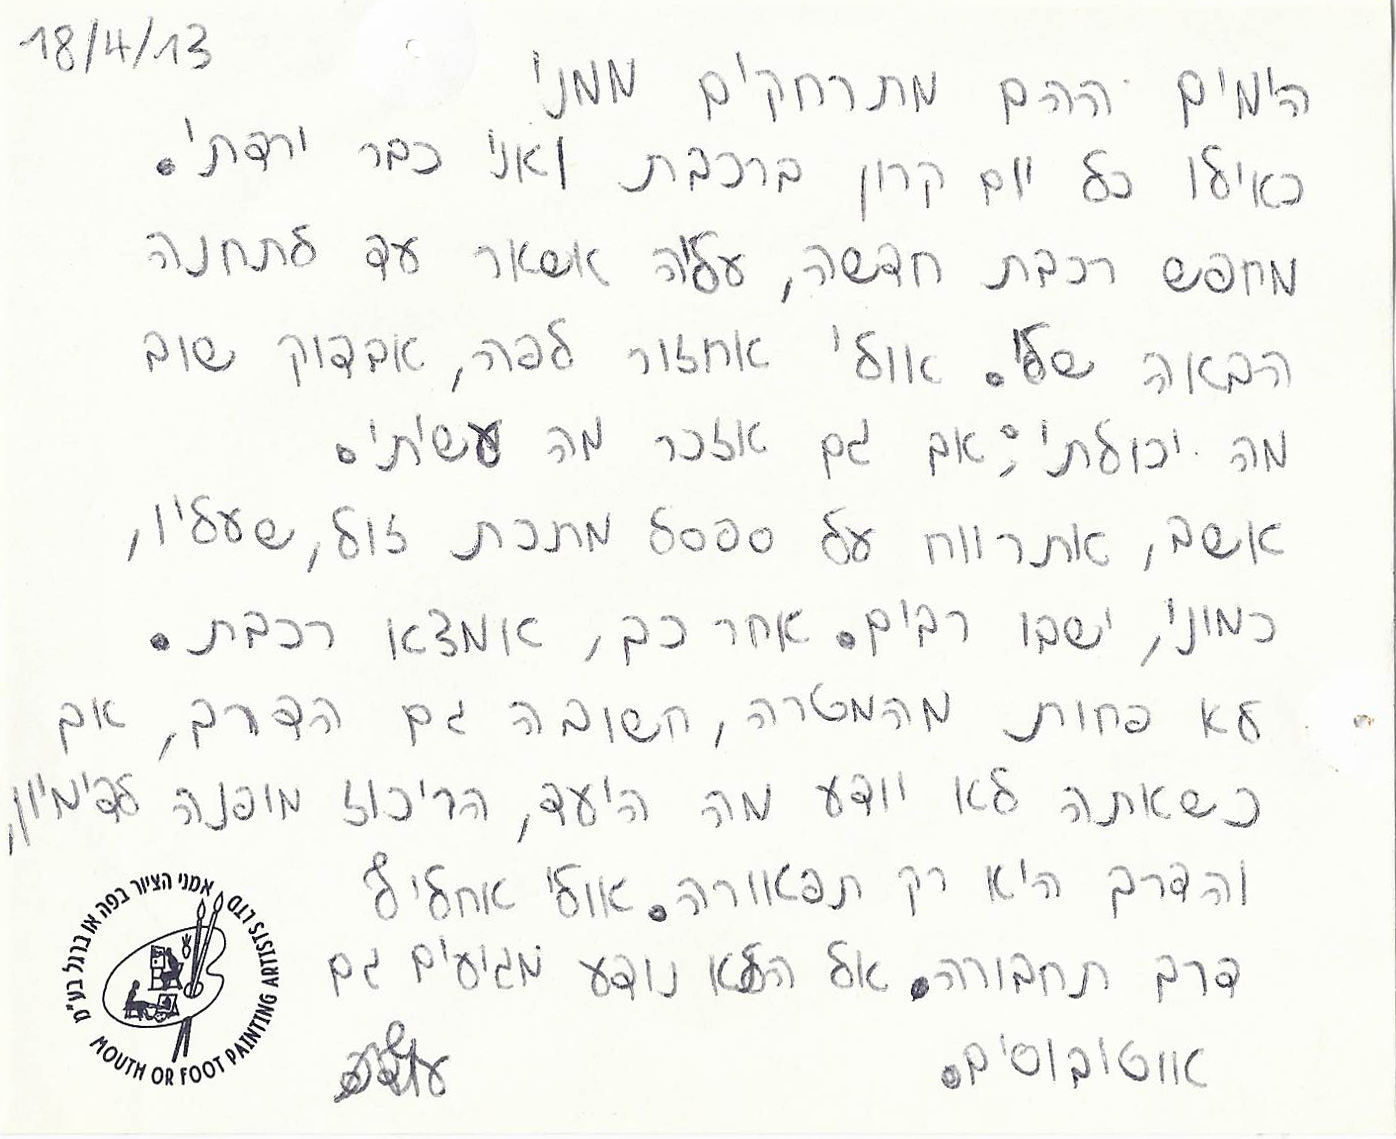 18/4/13
הימים ההם מתרחקים ממני
כאילו כל יום קרון ברכבת ואני כבר ירדתי.
מחפש רכבת חדשה, עליה אשאר עד לתחנה
הבאה שלי. אולי אחזור לפה, אבדוק שוב
מה יכולתי; אך גם אזכר מה עשיתי.
אשב, אתרווח על ספסל מתכת זול, שעליו,
כמוני, ישבו רבים. אחר כך, אמצא רכבת.
לא פחות מהמטרה, חשובה גם הדרך, אך
כשאתה לא יודע מה היעד, הריכוז מופנה לדימיון,
והדרך היא רק תפאורה. אולי אחליף
דרך תחבורה. אל הלא נודע מגיעים גם
אוטובוסים.
אמני הציור בפה או ברגל בע"מ
MOUTH OR FOOT PAINTING ARTISTS LTD